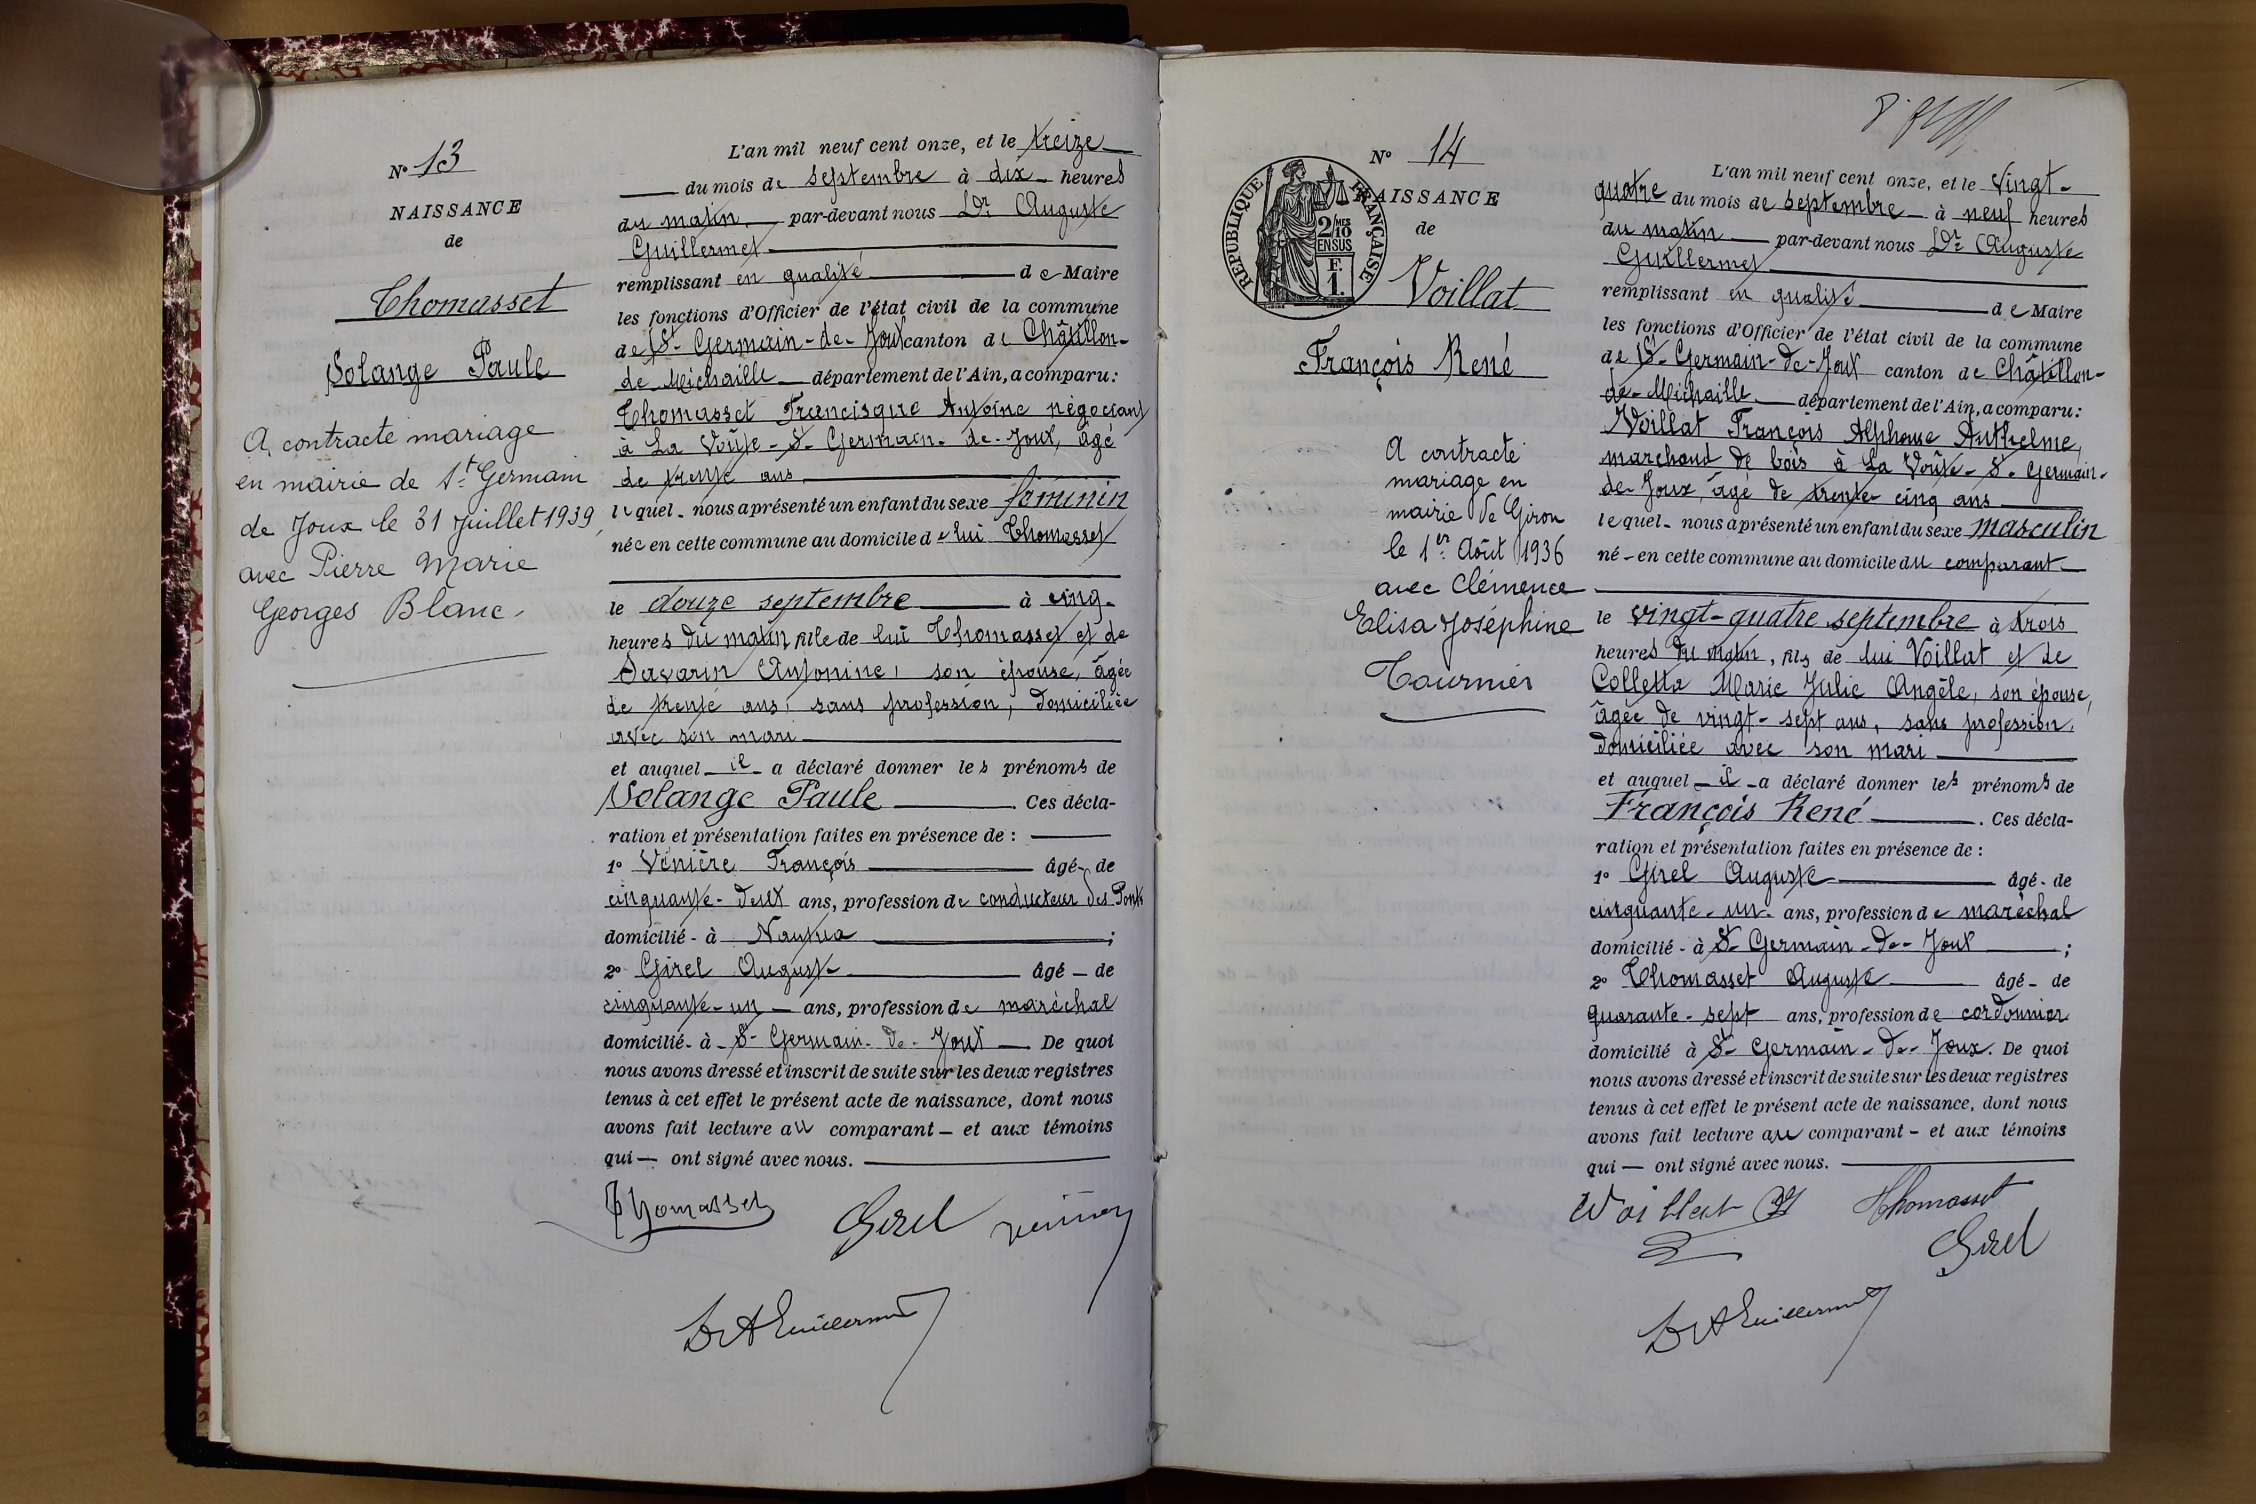 N° 13
NAISSANCE
de
Thomasset
Solange Paule
A contracté mariage
en mairie de St Germain
de Joux le 31 Juillet 1939,
avec Pierre Marie
Georges Blanc.
L'an mil neuf cent onze, et le treize
du mois de septembre à dix heures
du matin par-devant nous Dr Auguste
Guillermet
remplissant en qualité de Maire
les fonctions d'Officier de l'état civil de la commune
de St-Germain-de-Joux canton de Châtillon-
de Michaille département de l'Ain, a comparu:
Thomasset Francisque Antoine négociant
à La Voûte-St-Germain-de-Joux, âgé
de trente ans
lequel nous a présenté un enfant du sexe féminin
née en cette commune au domicile de lui Thomasset
le douze septembre à cinq
heures du matin, fille de lui Thomasset et de
Savarin Antonine, son épouse, âgée
de trente ans, sans profession, domiciliée
avec son mari
et auquel il a déclaré donner les prénoms de
Solange Paule. Ces décla-
ration et présentation faites en présence de :
1° Vénière François âgé de
cinquante-deux ans, profession de conducteur des Ponts
domicilié à Nantua ;
2° Girel Auguste âgé de
cinquante-un ans, profession de maréchal
domicilié à St-Germain-de-Joux. De quoi
nous avons dressé et inscrit de suite sur les deux registres
tenus à cet effet le présent acte de naissance, dont nous
avons fait lecture au comparant et aux témoins
qui ont signé avec nous.
Thomasset
Girel
DrAGuillermet
N° 14
NAISSANCE
de
RÉPUBLIQUE FRANÇAISE
2/10 MES
EN SUS
F.
1.
Voillat
François René
A contracté
mariage en
mairie de Giron
le 1er Août 1936
avec Clémence
Elisa Joséphine
Tournier
L'an mil neuf cent onze, et le vingt-
quatre du mois de septembre à neuf heures
du matin par-devant nous Dr Auguste
Guillermet
remplissant en qualité de Maire
les fonctions d'Officier de l'état civil de la commune
de St-Germain-de-Joux canton de Châtillon-
de-Michaille département de l'Ain, a comparu:
Voillat François Alphonse Anthelme,
marchand de bois à La Voûte-St-Germain-
de-Joux, âgé de trente cinq ans
lequel nous a présenté un enfant du sexe masculin
né en cette commune au domicile du comparant
le vingt-quatre septembre à trois
heures du matin, fils de lui Voillat et de
Colletta Marie Julie Angèle, son épouse,
âgée de vingt-sept ans, sans profession,
domiciliée avec son mari
et auquel il a déclaré donner les prénoms de
François René. Ces décla-
ration et présentation faites en présence de :
1° Girel Auguste âgé de
cinquante-un ans, profession de maréchal
domicilié à St Germain-de-Joux ;
2° Thomasset Auguste âgé de
quarante-sept ans, profession de cordonnier
domicilié à St-Germain-de-Joux. De quoi
nous avons dressé et inscrit de suite sur les deux registres
tenus à cet effet le présent acte de naissance, dont nous
avons fait lecture au comparant et aux témoins
qui ont signé avec nous.
Voillat
Thomasset
Girel
DrAGuillermet